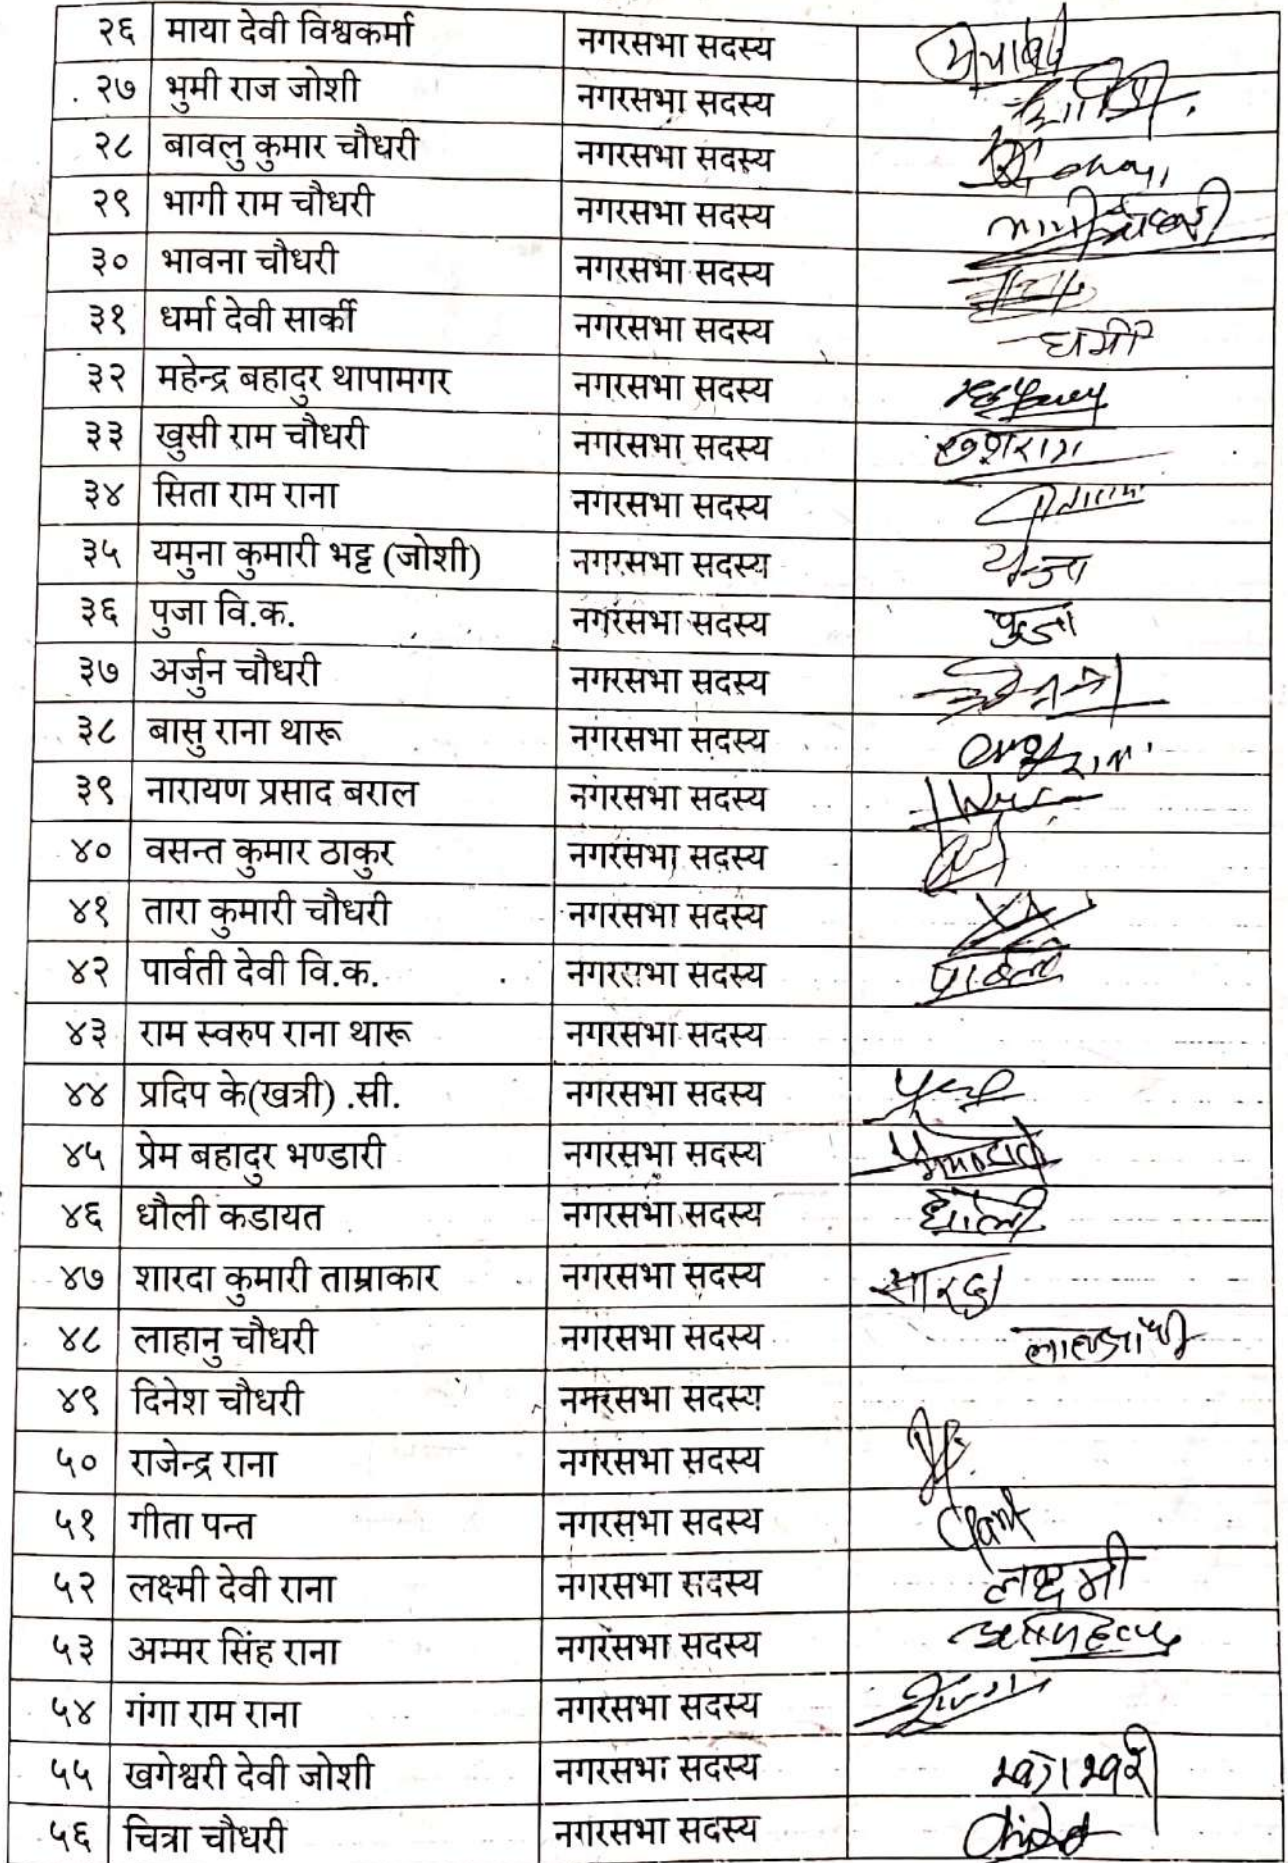 २६ माया देवी विश्वकर्मा नगरसभा सदस्य
२७ भुमी राज जोशी नगरसभा सदस्य
२८ बावलु कुमार चौधरी नगरसभा सदस्य
२९ भागी राम चौधरी नगरसभा सदस्य
३० भावना चौधरी नगरसभा सदस्य
३१ धर्मा देवी सार्की नगरसभा सदस्य
३२ महेन्द्र बहादुर थापामगर नगरसभा सदस्य
३३ खुसी राम चौधरी नगरसभा सदस्य
३४ सिता राम राना नगरसभा सदस्य
३५ यमुना कुमारी भट्ट (जोशी) नगरसभा सदस्य
३६ पुजा वि.क. नगरसभा सदस्य पुजा
३७ अर्जुन चौधरी नगरसभा सदस्य
३८ बासु राना थारू नगरसभा सदस्य
३९ नारायण प्रसाद बराल नगरसभा सदस्य
४० वसन्त कुमार ठाकुर नगरसभा सदस्य
४१ तारा कुमारी चौधरी नगरसभा सदस्य
४२ पार्वती देवी वि.क. नगरसभा सदस्य
४३ राम स्वरुप राना थारू नगरसभा सदस्य
४४ प्रदिप के(खत्री) .सी. नगरसभा सदस्य
४५ प्रेम बहादुर भण्डारी नगरसभा सदस्य
४६ धौली कडायत नगरसभा सदस्य धौली
४७ शारदा कुमारी ताम्राकार नगरसभा सदस्य सारदा
४८ लाहानु चौधरी नगरसभा सदस्य
४९ दिनेश चौधरी नगरसभा सदस्य
५० राजेन्द्र राना नगरसभा सदस्य
५१ गीता पन्त नगरसभा सदस्य
५२ लक्ष्मी देवी राना नगरसभा सदस्य लक्ष्मी
५३ अम्मर सिंह राना नगरसभा सदस्य
५४ गंगा राम राना नगरसभा सदस्य
५५ खगेश्वरी देवी जोशी नगरसभा सदस्य
५६ चित्रा चौधरी नगरसभा सदस्य